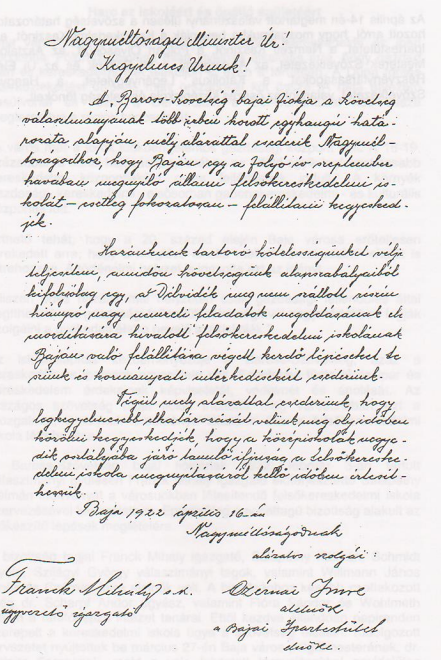 Nagyméltóságu Minister Úr!
Kegyelmes Urunk!
A "Baross-Szövetség" bajai fiókja a szövetség
választmányának több izben hozott egyhangu hatá-
rozata alapján, mély alázattal esedezik Nagymél-
tóságodhoz, hogy Baján egy a folyó év szeptember
havában megnyiló állami felsőkereskedelmi is-
kolát – esetleg fokozatosan – felállitani kegyesked-
jék.
Hazánknak tartozó kötelességünket véljük
teljesiteni, amidőn szövetségünk alapszabályaiból
kifolyólag egy, a Délvidék meg nem szállott részén
hiányzó nagy nemzeti feladatok megoldásának elő
mozditására hivatott felsőkereskedelmi iskolának
Baján való felállitása végett kezdő lépéseket te
szünk és kormányzati intézkedésekért esedezünk.
Végül mély alázattal esedezünk, hogy
legkegyelmesebb elhatározását velünk még oly időben
közölni kegyeskedjék, hogy a középiskolák negye-
dik osztályába járó tanulóifjuság a felsőkereske-
delmi iskola megnyitásáról kellő időben értesit-
hessük.
Baja 1922 április 16.-án
Nagyméltóságodnak
alázatos szolgái:
Franck Mihály s.k.
ügyvezető igazgató
Imre
alelnök
a Bajai Ipartestület
elnöke.